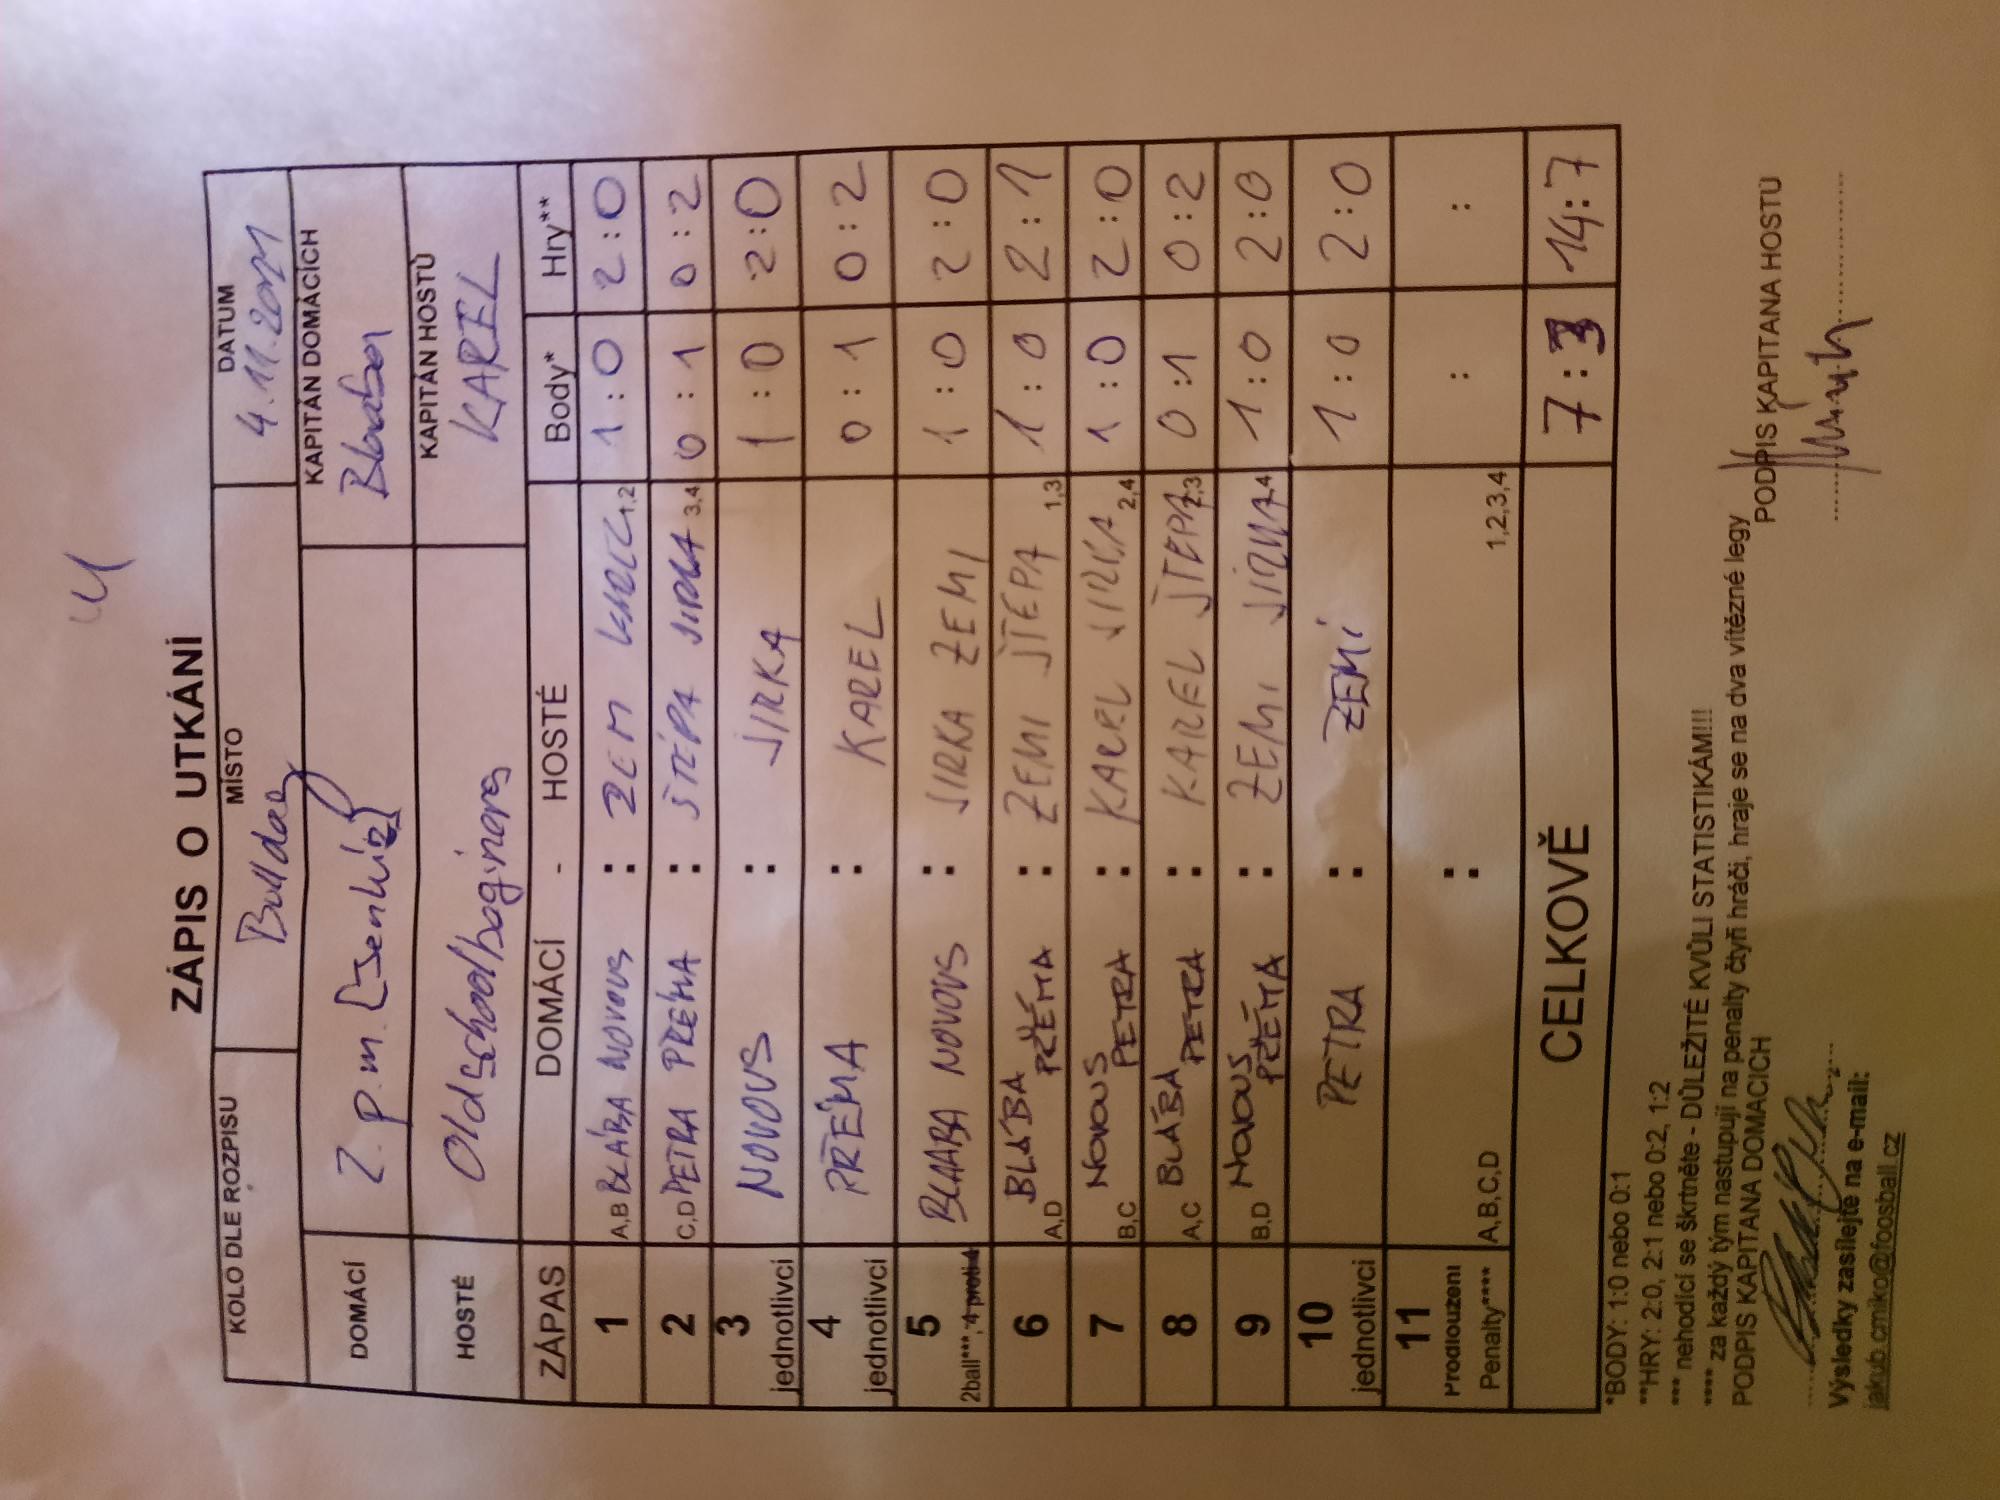 ZÁPIS O UTKÁNÍ
KOLO DLE ROZPISU MÍSTO DATUM
Bulldog 4.11.2021
DOMÁCÍ Z.p.m. KAPITÁN DOMÁCÍCH
HOSTÉ KAPITÁN HOSTŮ KAREL
ZÁPAS DOMÁCÍ - HOSTÉ Body* Hry**
1 A,B BLÁBA NOVOUS : ZEMI KAREL 1,2 1:0 2:0
2 C,D PETRA PŘÉMA : ŠTĚPA JIRKA 3,4 0:1 0:2
3 jednotlivci NOVOUS : JIRKA 1:0 2:0
4 jednotlivci PŘÉMA : KAREL 0:1 0:2
5 2ball***, 4 proti 4 BLÁBA NOVOUS : JIRKA ZEMI 1:0 2:0
6 A,D BLÁBA PŘÉMA : ZEMI ŠTĚPA 1,3 1:0 2:1
7 B,C NOVOUS PETRA : KAREL JIRKA 2,4 1:0 2:0
8 A,C BLÁBA PETRA : KAREL ŠTĚPA 2,3 0:1 0:2
9 B,D NOVOUS PŘÉMA : ZEMI JIRKA 1,4 1:0 2:0
10 jednotlivci PETRA : ZEMÍ 1:0 2:0
11 Prodloužení Penalty**** A,B,C,D : 1,2,3,4 : :
CELKOVĚ 7:3 14:7
*BODY: 1:0 nebo 0:1
**HRY: 2:0, 2:1 nebo 0:2, 1:2
*** nehodící se škrtněte - DŮLEŽITÉ KVŮLI STATISTIKÁM!!!
**** za každý tým nastupují na penalty čtyři hráči, hraje se na dva vítězné legy
PODPIS KAPITÁNA DOMÁCÍCH PODPIS KAPITÁNA HOSTŮ
Výsledky zasílejte na e-mail:
jakub.crniko@foosball.cz